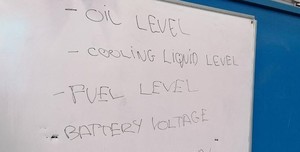 - OIL LEVEL
- COOLING LIQUID LEVEL
- FUEL LEVEL
- BATTERY VOLTAGE